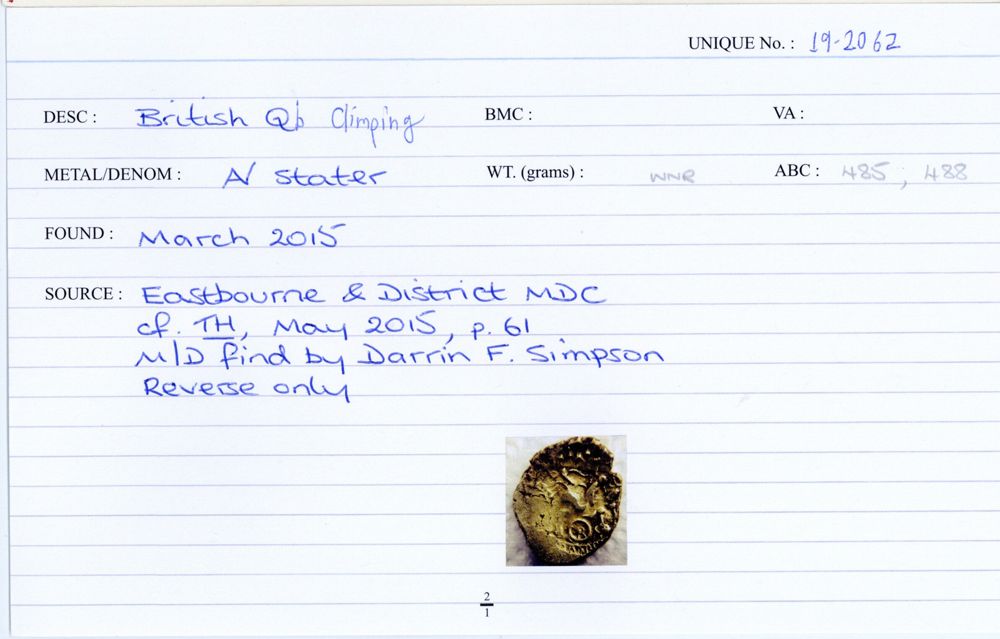 UNIQUE No. : 19-2062
DESC : British Qb Climping BMC : VA :
METAL/DENOM : A/ stater WT. (grams) : WNR ABC : 485, 488
FOUND : March 2015
SOURCE : Eastbourne & District MDC
cf. TH, May 2015, p. 61
M/D find by Darrin F. Simpson
Reverse only
2
1